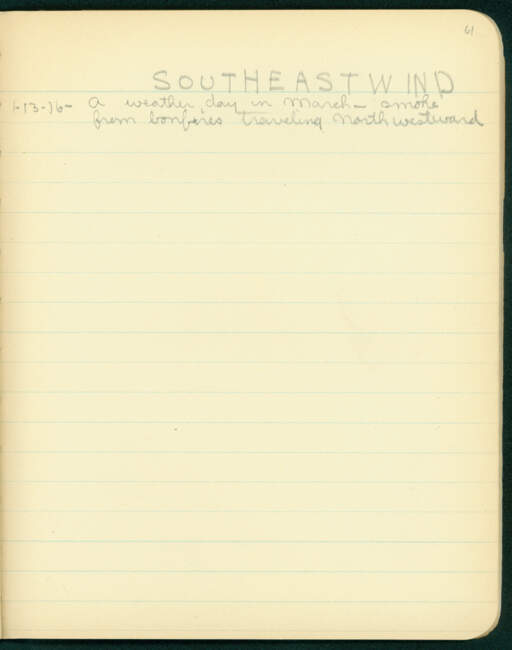 61
SOUTHEAST WIND
1-13-16- A weather day in March - smoke
from bonfires traveling Northwestward